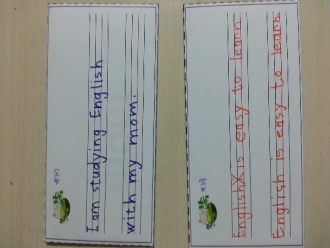 I am studying English
with my mom.
English is easy to learn.
English is easy to learn.